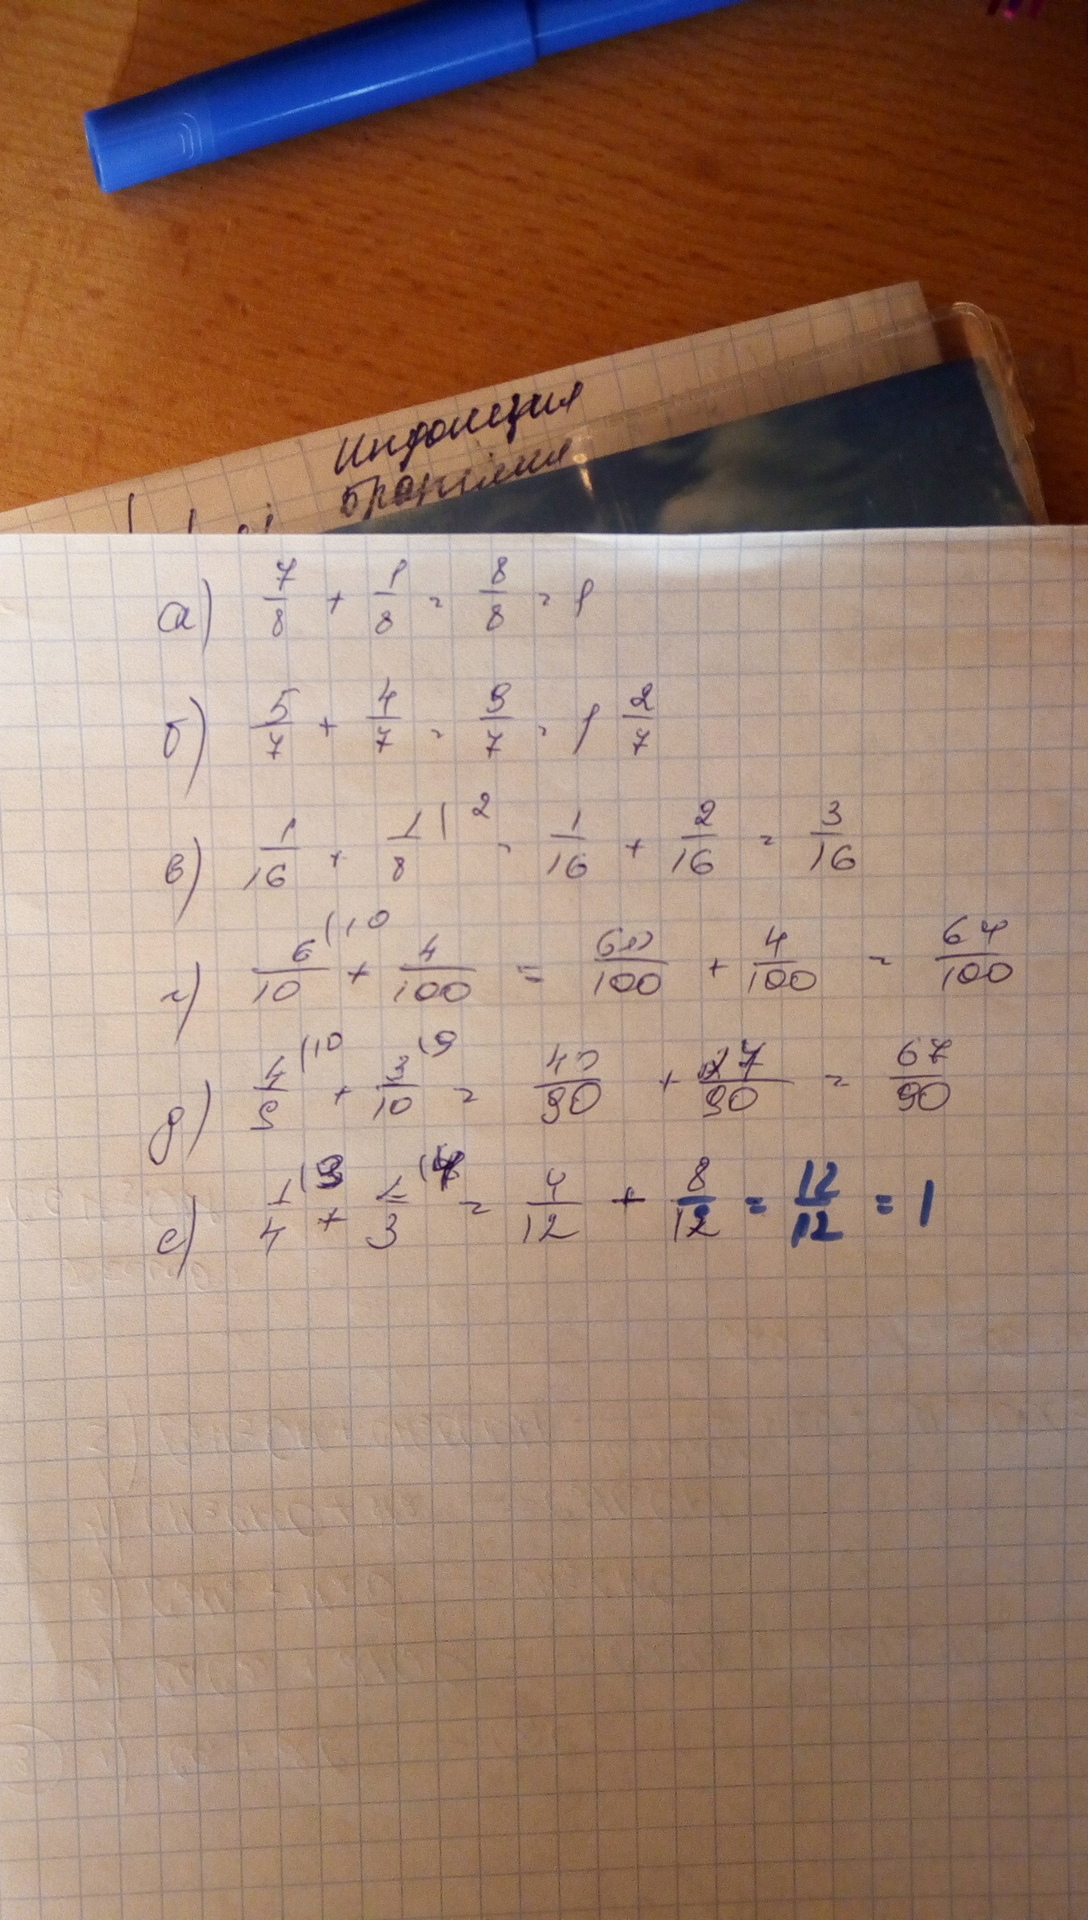 Индонезия
Бразилия
а) 7/8 + 1/8 = 8/8 = 1
б) 5/7 + 4/7 = 9/7 = 1 2/7
в) 1/16 + 1/8 | 2 = 1/16 + 2/16 = 3/16
г) 6/10 (10 + 4/100 = 60/100 + 4/100 = 64/100
д) 4/9 (10 + 3/10 (9 = 40/90 + 27/90 = 67/90
е) 1/4 (3 + 2/3 (4 = 4/12 + 8/12 = 12/12 = 1